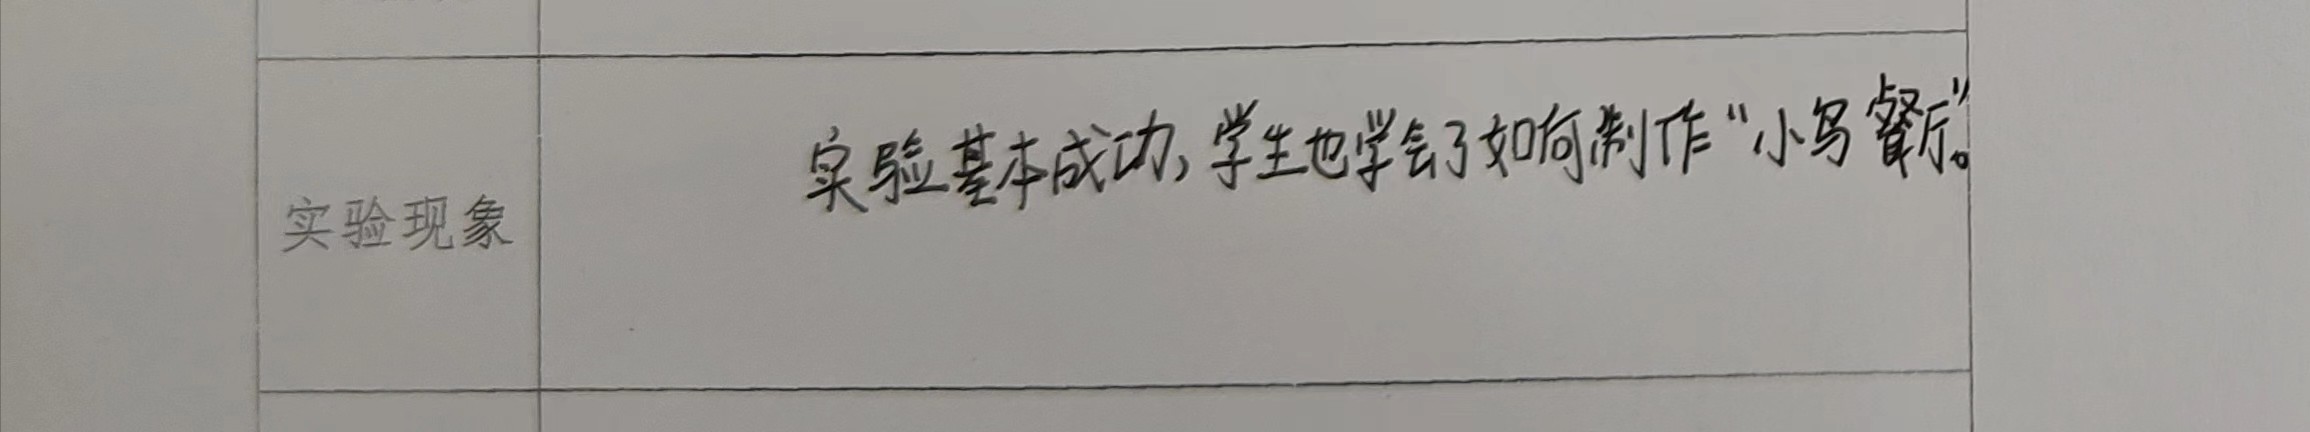 实验现象
实验基本成功，学生也学会了如何制作“小鸟餐厅”。